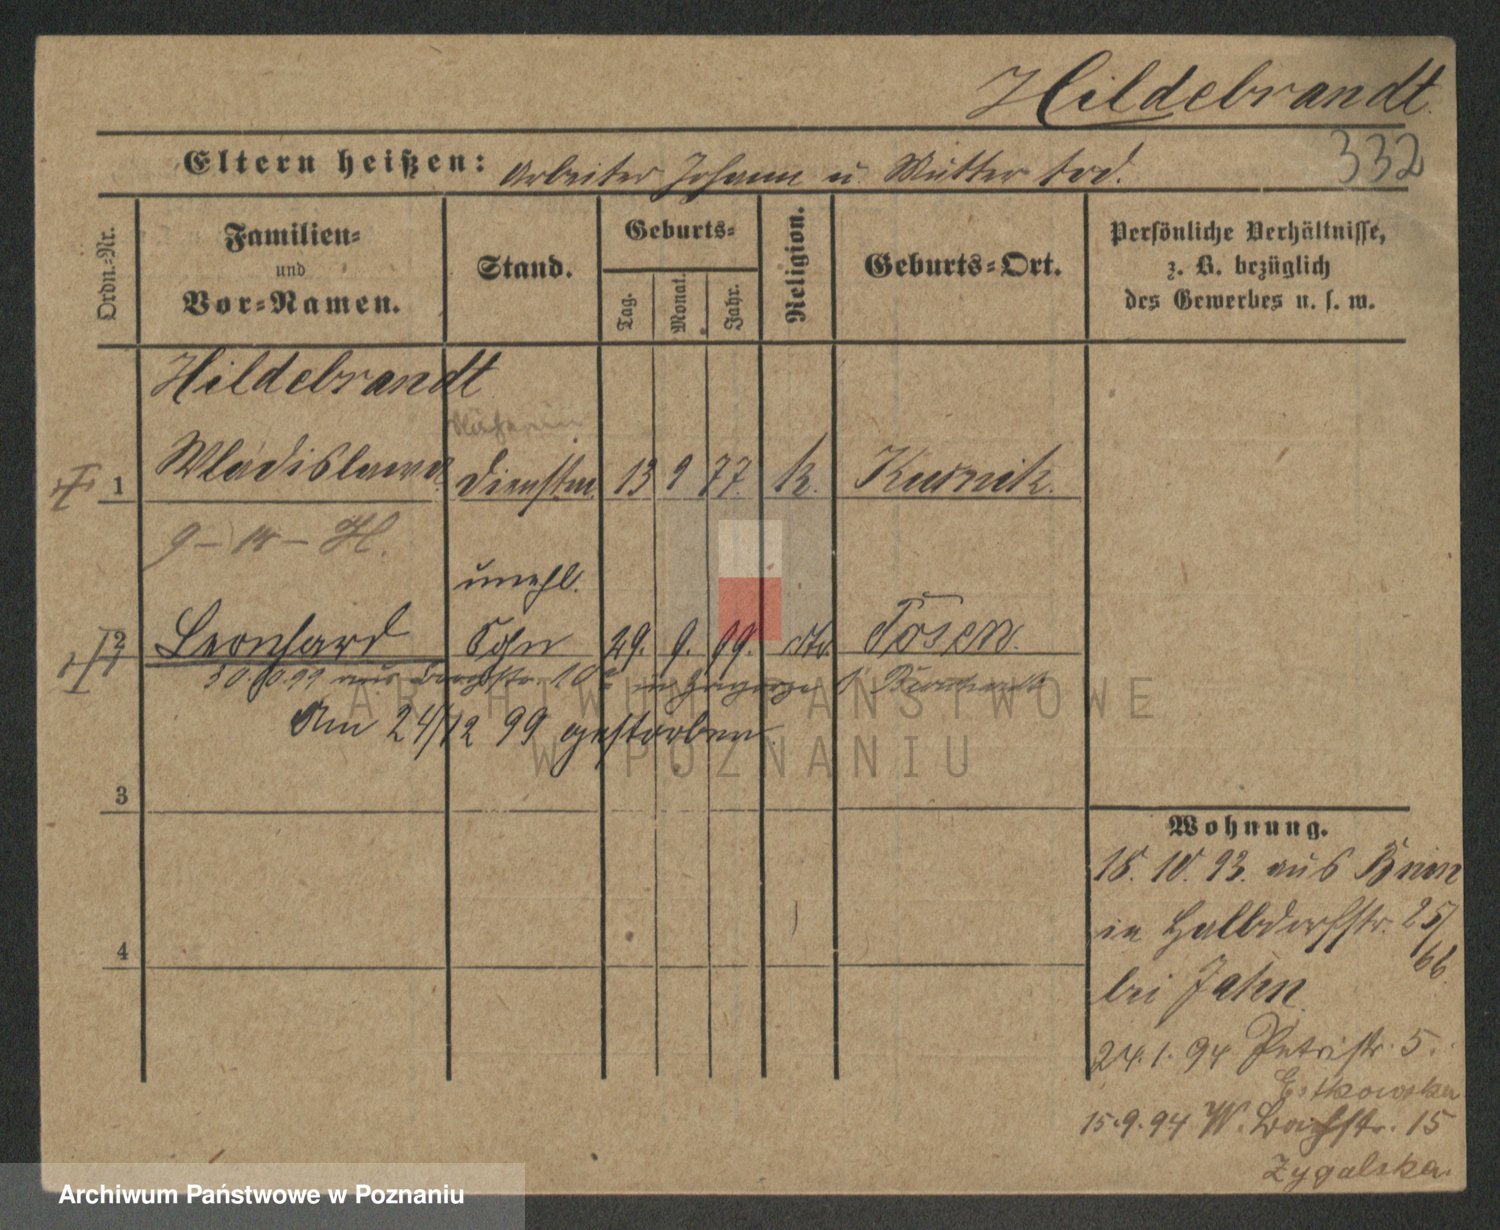 Hildebrandt.
332
Eltern heißen: Arbeiter Johann u. Mutter tod.
Ordn.-Nr.
Familien-
und
Vor-Namen.
Stand.
Geburts-
Tag.
Monat.
Jahr.
Religion.
Geburts-Ort.
Persönliche Verhältnisse,
z. B. bezüglich
des Gewerbes u. s. w.
Hildebrandt
1 Wladislawa Dienstm 13 9 77. k. Kurnik.
unehl.
2 Leonhard Sohn 29. 9. 99. Posen.
Am 24/12 99 gestorben.
3
4
Wohnung.
18. 10. 93. aus
in Halbdorfstr. 25/
66
bei Jahn
24. 1. 94 Petristr. 5.
15.9.94 W. 15
Zygalska.
ARCHIWUM PAŃSTWOWE
W POZNANIU
Archiwum Państwowe w Poznaniu